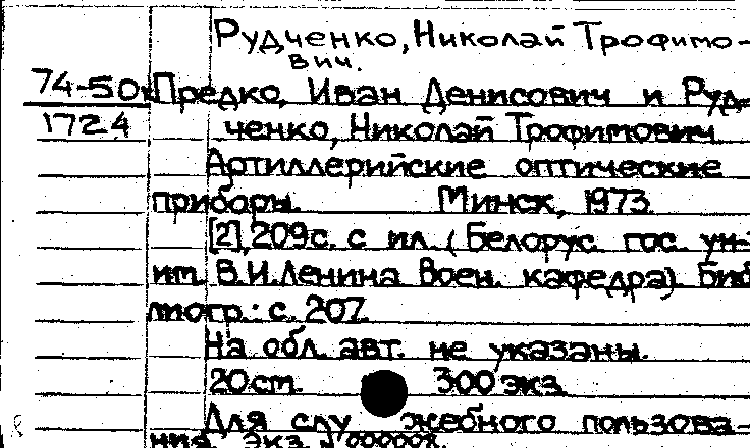 Рудченко, Николай Трофимо-
вич.
74-50
Предко, Иван Денисович и Руд-
172.4
ченко, Николай Трофимович
Артиллерийские оптические
приборы. Минск, 1973.
[2], 209с. с ил. (Белорус. гос. ун-
им. В.И.Ленина Воен. кафедра). Биб
лиогр.: с. 207.
На обл. авт. не указаны.
20см. 300 экз.
Для слу жебного пользова-
ния. Экз. 000008.